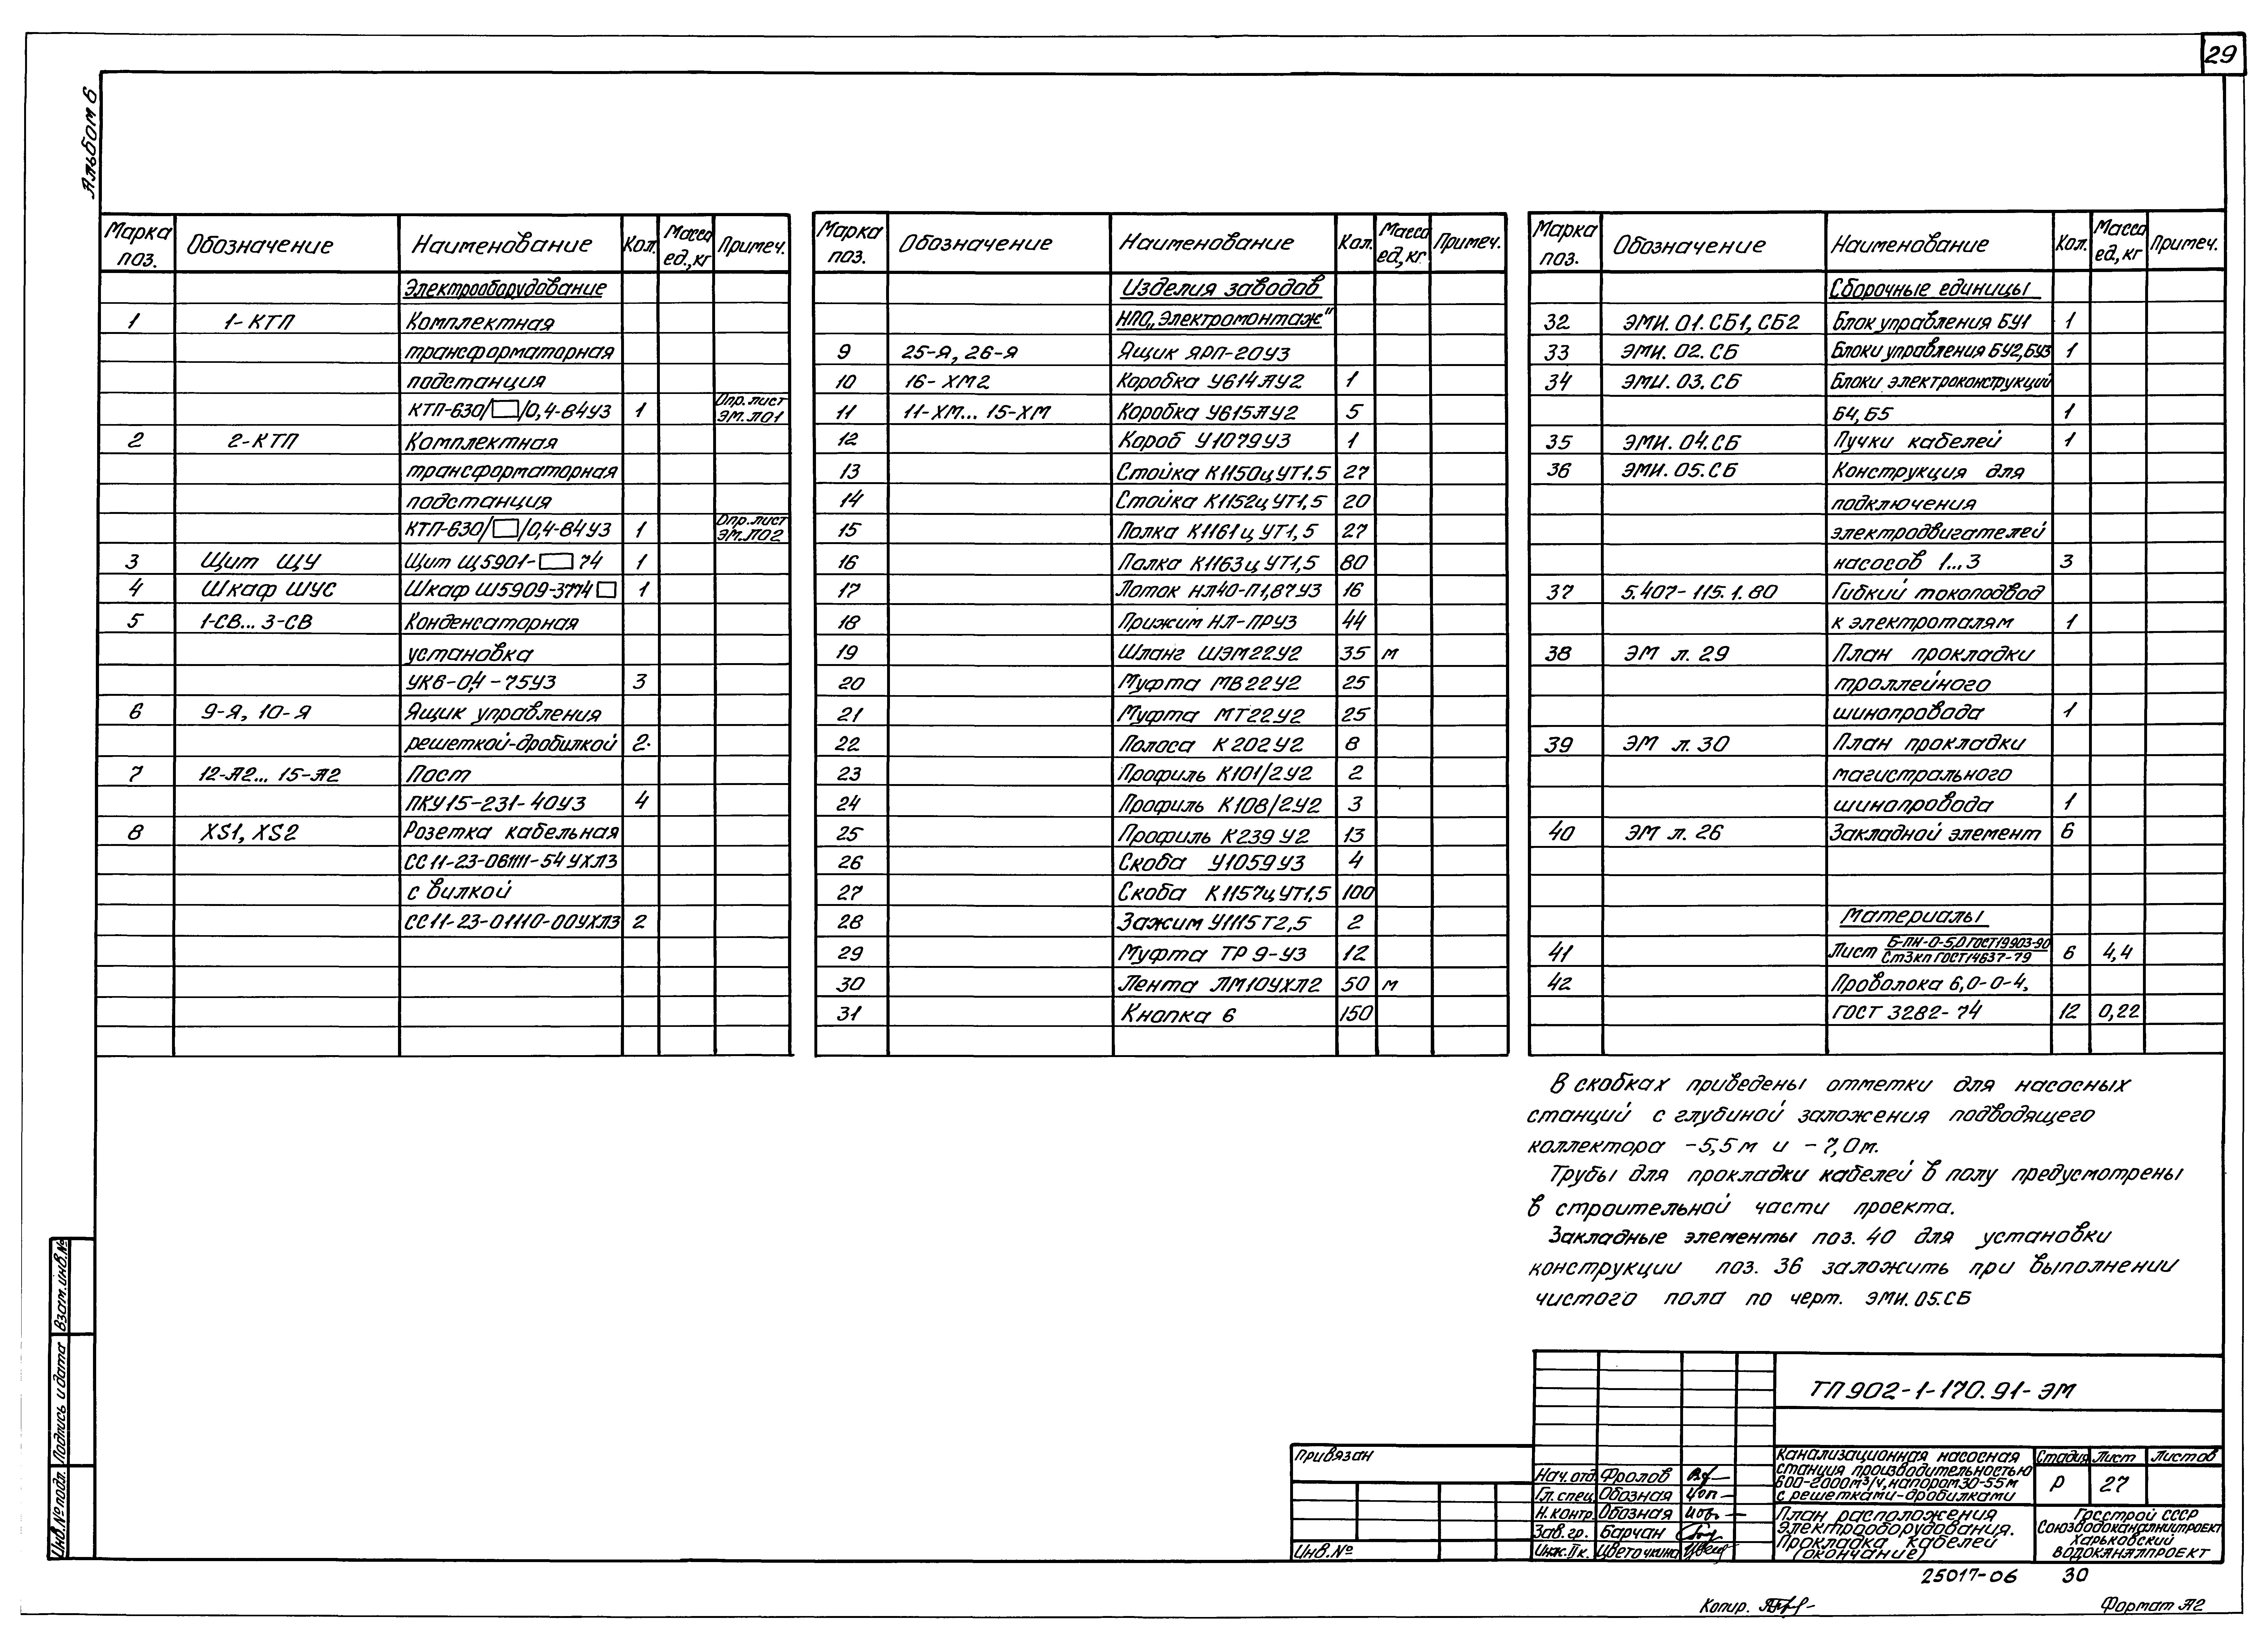 29
Альбом 6
Марка поз. Обозначение Наименование Кол. Масса ед., кг Примеч.
Электрооборудование
1 1-КТП Комплектная
трансформаторная
подстанция
КТП-630/□/0,4-84У3 1 Опр. лист ЭМ.ЛО1
2 2-КТП Комплектная
трансформаторная
подстанция
КТП-630/□/0,4-84У3 1 Опр. лист ЭМ.ЛО2
3 Щит ЩУ Щит Щ5901-□74 1
4 Шкаф ШУС Шкаф Ш5909-3774□ 1
5 1-СВ... 3-СВ Конденсаторная
установка
УК6-0,4-75У3 3
6 9-Я, 10-Я Ящик управления
решеткой-дробилкой 2
7 12-Я2... 15-Я2 Пост
ПКУ15-231-40У3 4
8 XS1, XS2 Розетка кабельная
СС11-23-061111-54УХЛ3
с вилкой
СС11-23-01110-00УХЛ3 2
Марка поз. Обозначение Наименование Кол. Масса ед., кг Примеч.
Изделия заводов
НПО „Электромонтаж"
9 25-Я, 26-Я Ящик ЯРП-20У3
10 16-ХМ2 Коробка У614ЛУ2 1
11 11-ХМ... 15-ХМ Коробка У615ЛУ2 5
12 Короб У1079У3 1
13 Стойка К1150ц УТ1.5 27
14 Стойка К1152ц УТ1,5 20
15 Полка К1161ц УТ1,5 27
16 Полка К1163ц УТ1,5 80
17 Лоток НЛ40-П1,87У3 16
18 Прижим НЛ-ПРУ3 44
19 Шланг ШЭМ22У2 35 м
20 Муфта МВ22У2 25
21 Муфта МТ22У2 25
22 Полоса К202У2 8
23 Профиль К101/2У2 2
24 Профиль К108/2У2 3
25 Профиль К239У2 13
26 Скоба У1059У3 4
27 Скоба К1157ц УТ1,5 100
28 Зажим У1115Т2,5 2
29 Муфта ТР 9-У3 12
30 Лента ЛМ10УХЛ2 50 м
31 Кнопка 6 150
Марка поз. Обозначение Наименование Кол. Масса ед., кг Примеч.
Сборочные единицы
32 ЭМИ.01.СБ1, СБ2 Блок управления БУ1 1
33 ЭМИ.02.СБ Блоки управления БУ2, БУ3 1
34 ЭМИ.03.СБ Блоки электроконструкций
Б4, Б5 1
35 ЭМИ.04.СБ Пучки кабелей 1
36 ЭМИ.05.СБ Конструкция для
подключения
электродвигателей
насосов 1...3 3
37 5.407-115.1.80 Гибкий токоподвод
к электроталям 1
38 ЭМ л. 29 План прокладки
троллейного
шинопровода 1
39 ЭМ л. 30 План прокладки
магистрального
шинопровода 1
40 ЭМ л. 26 Закладной элемент 6
Материалы
41 Лист Б-ПН-О-5,0 ГОСТ19903-90 / Ст3кп ГОСТ14637-79 6 4,4
42 Проволока 6,0-0-4,
ГОСТ 3282-74 12 0,22
В скобках приведены отметки для насосных
станций с глубиной заложения подводящего
коллектора -5,5м и -7,0м.
Трубы для прокладки кабелей в полу предусмотрены
в строительной части проекта.
Закладные элементы поз. 40 для установки
конструкции поз. 36 заложить при выполнении
чистого пола по черт. ЭМИ.05.СБ
Взам. инв.№
Подпись и дата
Инв.№ подл.
ТП902-1-170.91-ЭМ
Привязан
Инв.№
Нач. отд. Фролов
Гл. спец. Обозная
Н. контр. Обозная
Зав. гр. Барчан
Инж. IIк. Цветочкина
Канализационная насосная
станция производительностью
600-2000м³/ч, напором 30-55м
с решетками-дробилками
Стадия Лист Листов
Р 27
План расположения
электрооборудования.
Прокладка кабелей
(окончание)
Госстрой СССР
Союзводоканалниипроект
Харьковский
Водоканалпроект
25017-06 30
Копир.
Формат А2